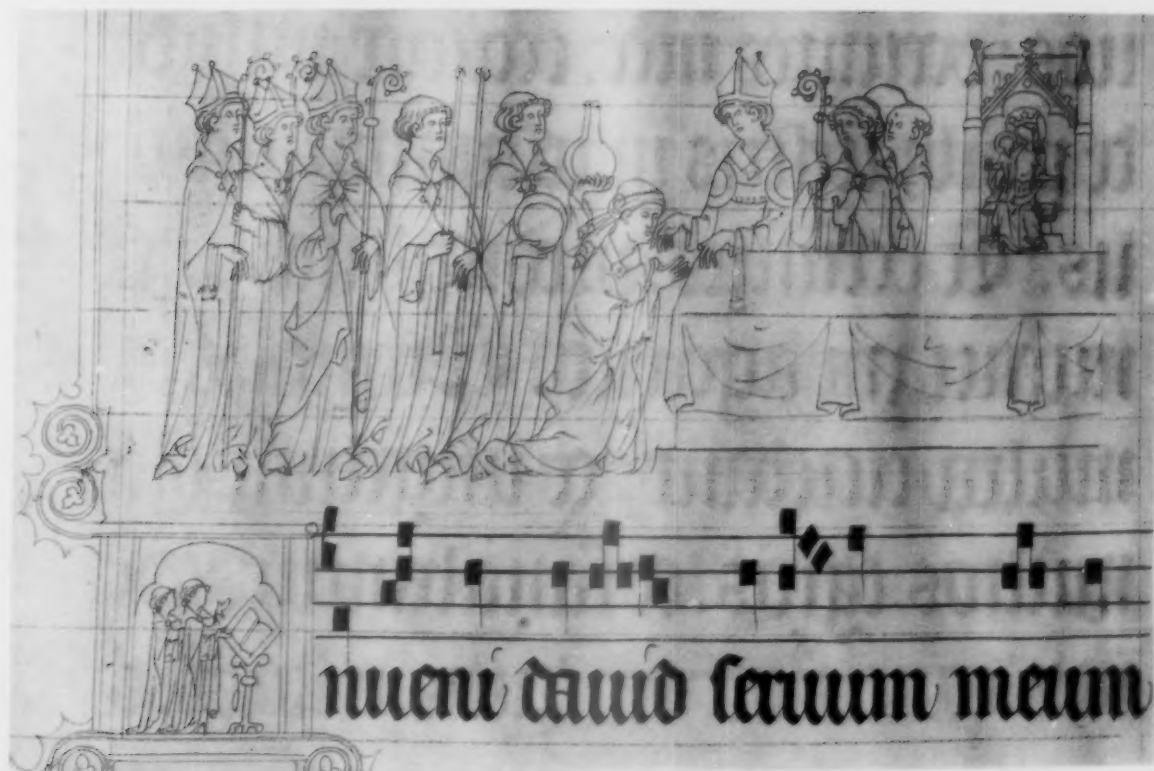 nueni dauid seruum meum